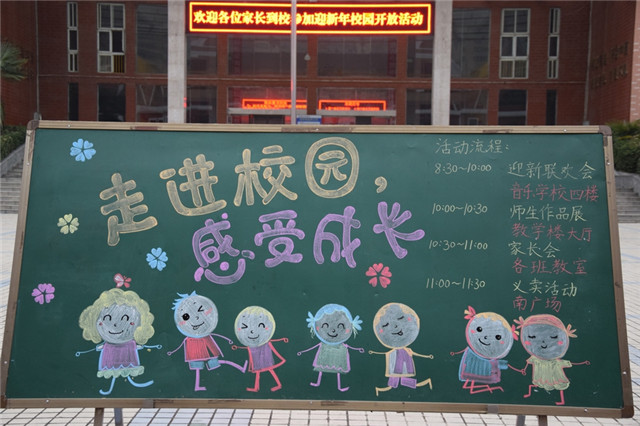 欢迎各位家长到校参加迎新年校园开放活动
走进校园,
感受成长
活动流程:
8:30~10:00 迎新联欢会
音乐学校四楼
10:00~10:30 师生作品展
教学楼大厅
10:30~11:00 家长会
各班教室
11:00~11:30 义卖活动
南广场